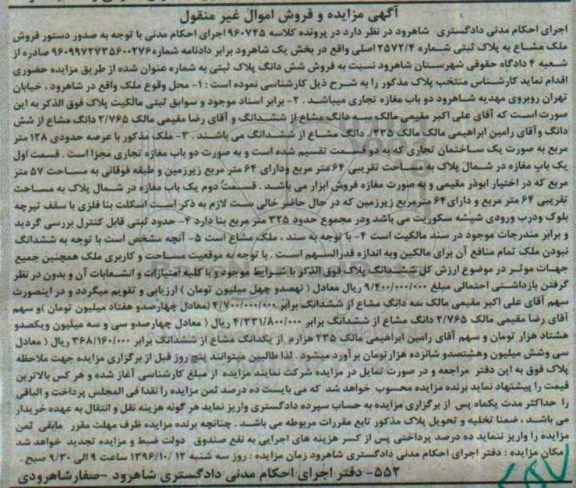 آگهی مزایده و فروش اموال غیر منقول
اجرای احکام مدنی دادگستری شاهرود در نظر دارد در پرونده کلاسه ۹۶۰۷۴۵ اجرای احکام مدنی با توجه به صدور دستور فروش
ملک مشاع به پلاک ثبتی شماره ۲۵۷۲/۴ اصلی واقع در بخش یک شاهرود برابر دادنامه شماره ۹۶۰۹۹۷۲۷۳۵۶۰۰۲۷۶ صادره از
شعبه ۴ دادگاه حقوقی شهرستان شاهرود نسبت به فروش شش دانگ پلاک ثبتی به شماره عنوان شده از طریق مزایده حضوری
اقدام نماید کارشناس منتخب پلاک مذکور را به شرح ذیل کارشناسی نموده است : ۱- محل وقوع ملک واقع در شاهرود ، خیابان
تهران روبروی مهدیه شاهرود دو باب مغازه تجاری میباشد . ۲- برابر اسناد موجود و سوابق ثبتی مالکیت پلاک فوق الذکر به این
صورت است که آقای علی اکبر مقیمی مالک سه دانگ مشاع از ششدانگ و آقای رضا مقیمی مالک ۲/۷۶۵ دانگ مشاع از شش
دانگ و آقای رامین ابراهیمی مالک ۲۳۵، دانگ مشاع از ششدانگ می باشند . ۳- ملک مذکور با عرصه حدودی ۱۲۸ متر
مربع به صورت یک ساختمان تجاری که به دو قسمت تقسیم شده است و به صورت دو باب مغازه تجاری مجزا است . قسمت اول
یک باب مغازه در شمال پلاک به مساحت تقریبی ۶۴ متر مربع ودارای ۶۴ متر مربع زیرزمین و طبقه فوقانی به مساحت ۵۷ متر
مربع که در اختیار ابوذر مقیمی و به صورت مغازه فروش ابزار می باشد . قسمت دوم یک باب مغازه در شمال پلاک به مساحت
تقریبی ۶۴ متر مربع و دارای ۶۴ مترمربع زیرزمین که در حال حاضر خالی ست لازم به ذکر است اسکلت بنا فلزی با سقف تیرچه
بلوک ودرب ورودی شیشه سکوریت می باشد ودر مجموع حدود ۳۲۵ متر مربع بنا دارد ۴- حدود ثبتی قابل کنترل بررسی گردید
و برابر مندرجات موجود در سند مالکیت است ۴- با توجه به سند ، ملک مشاع است ۵- آنچه مشخص است با توجه به ششدانگ
نبودن ملک تمام منافع آن برای مالکین وبه اندازه قدرالسهم است . با توجه به موقعیت مساحت و کاربری ملک همچنین جمیع
جهات موثر در موضوع ارزش کل ششدانگ پلاک فوق الذکر با شرایط موجود و با کلیه امتیازات و انشعابات آن و بدون در نظر
گرفتن بازداشتی احتمالی مبلغ ۹/۴۰۰/۰۰۰/۰۰۰ ریال معادل ( نهصدو چهل میلیون تومان ) ارزیابی و تقویم میگردد و در اینصورت
سهم آقای علی اکبر مقیمی مالک سه دانگ مشاع از ششدانگ برابر ۴/۷۰۰/۰۰۰/۰۰۰ (معادل چهارصدو هفتاد میلیون تومان )و سهم
آقای رضا مقیمی مالک ۲/۷۶۵ دانگ مشاع از ششدانگ برابر ۴/۳۳۱/۸۰۰/۰۰۰ ریال ( معادل چهارصدو سی و سه میلیون ویکصدو
هشتاد هزار تومان و سهم آقای رامین ابراهیمی مالک ۲۳۵ هزارم از یکدانگ مشاع از ششدانگ برابر ۳۶۸/۱۶۰/۰۰۰ ریال ( معادل
سی وشش میلیون وهشتصدو شانزده هزارتومان برآورد میشود . لذا طالبین میتوانند پنج روز قبل از برگزاری مزایده جهت ملاحظه
پلاک فوق به این دفتر مراجعه و در صورت تمایل در مزایده شرکت نمایند مزایده از مبلغ کارشناسی آغاز شده و هر کس بالاترین
قیمت را پیشنهاد نماید برنده مزایده محسوب خواهد شد که می بایست ده درصد ثمن مزایده را نقدا فی المجلس پرداخت و الباقی
را حداکثر مدت یکماه پس از برگزاری مزایده به حساب سپرده دادگستری واریز نماید هر گونه هزینه نقل و انتقال به عهده خریدار
می باشند . ضمنا تخلیه و تحویل پلاک مذکور تابع مقررات مربوطه می باشد . چنانچه برنده مزایده ظرف مهلت مقرر مابقی ثمن
مزایده را واریز ننماید ده درصد پرداختی پس از کسر هزینه های اجرایی به نفع صندوق دولت ضبط و مزایده تجدید خواهد شد
مکان مزایده : دفتر اجرای احکام مدنی دادگستری شاهرود زمان مزایده : روز سه شنبه ۱۲ /۱۳۹۶/۱۰ ساعت ۹ الی ۹/۳۰ صبح
۵۵۲- دفتر اجرای احکام مدنی دادگستری شاهرود -صفارشاهرودی